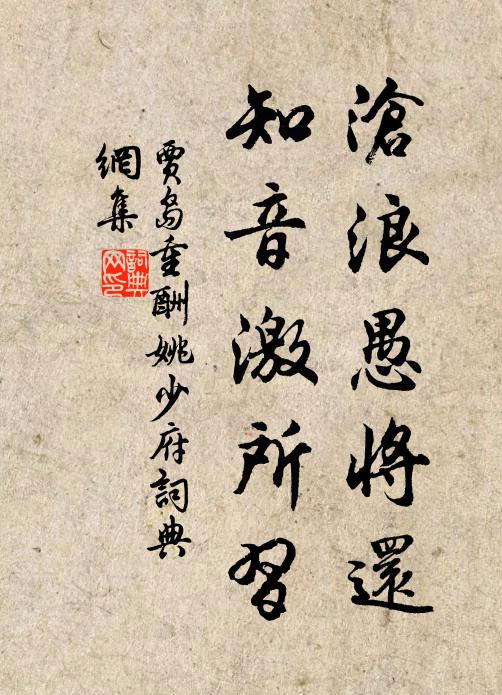 滄浪愚將還
知音激所習
賈島重酬姚少府詞典
網集
詞典
网印